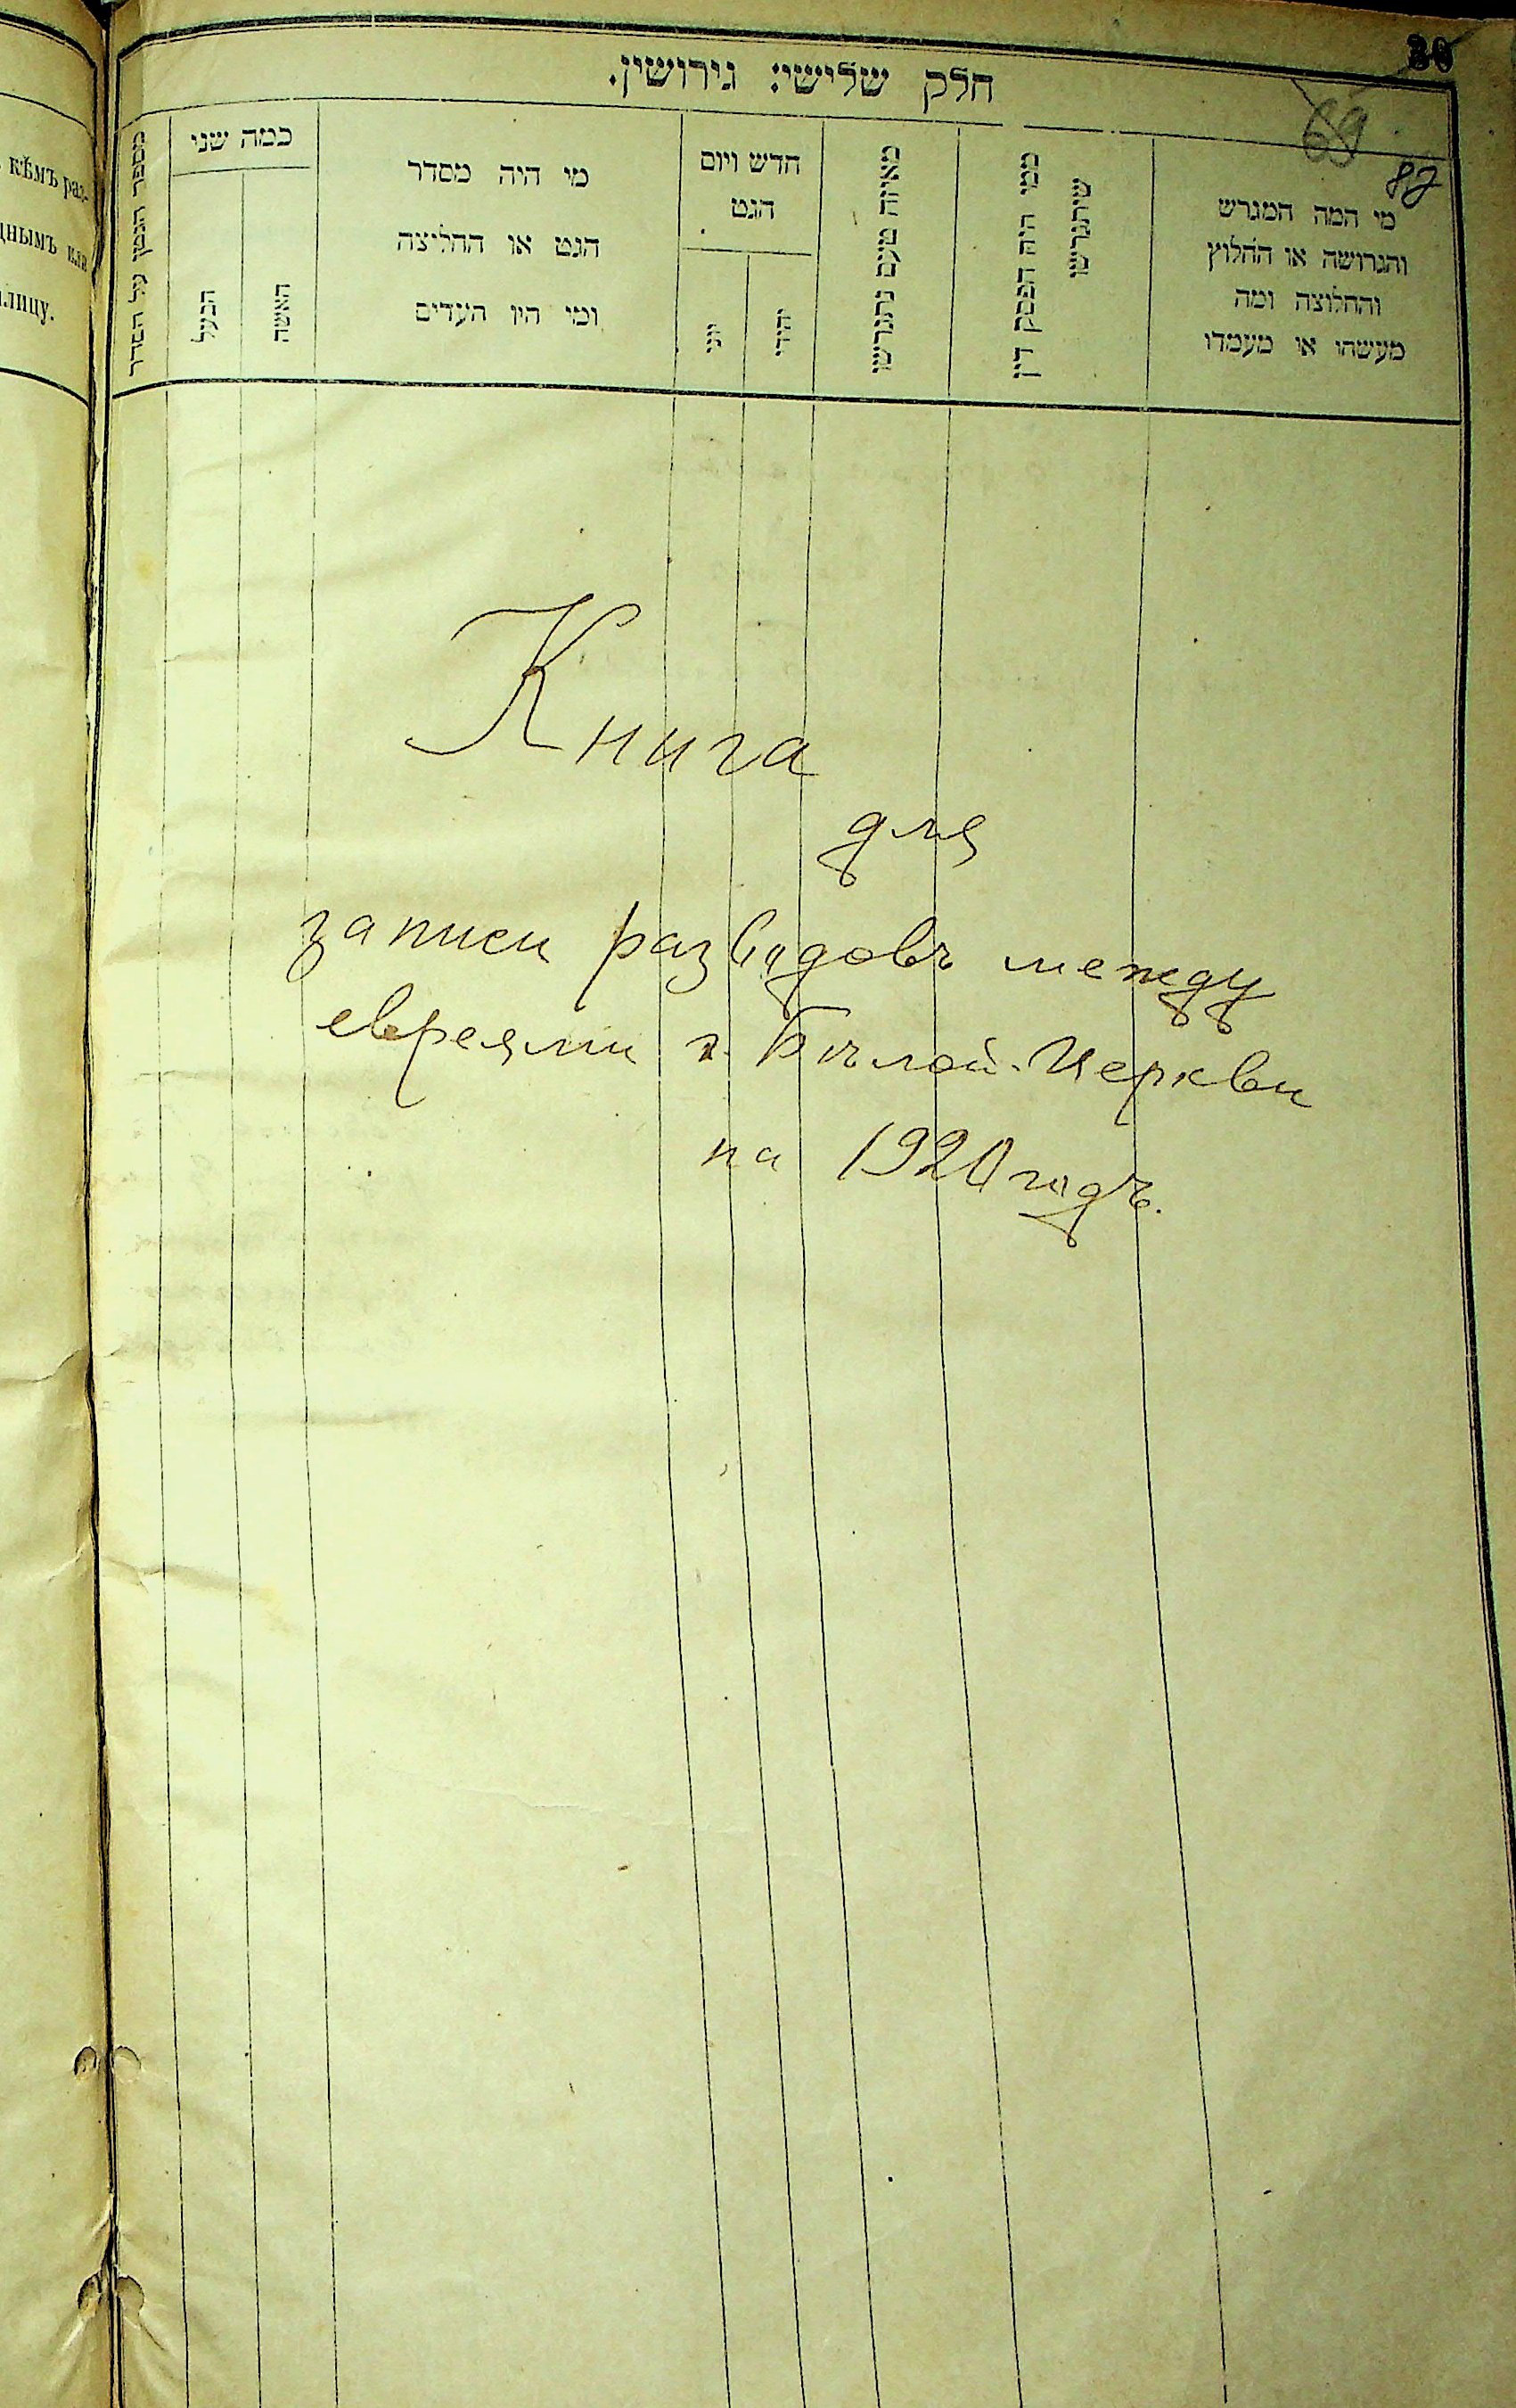 30
69
87
חלק שלישי: גירושין.
מי המה המגרש
והגרושה או החלוץ
והחלוצה ומה
מעשהו או מעמדו
ממי היה הפסק דין
שיתגרשו
מאיזה טעם נתגרשו
חדש ויום
הגט
יהודי
יוני
מי היה מסדר
הגט או החליצה
ומי היו העדים
כמה שני
האשה
הבעל
מספר הגטין על הסדר
кѣмъ раз-
днымъ или
лицу.
Книга
для
записи разводовъ между
евреями г. Бѣлой-Церкви
на 1920 годъ.